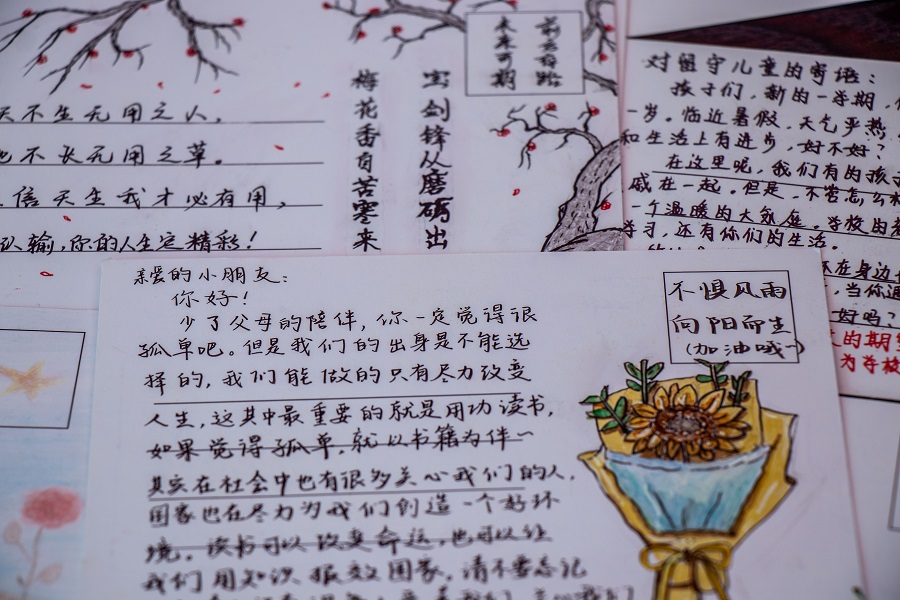 天不生无用之人，
地不长无用之草。
信天生我才必有用，
认输，你的人生定精彩！
宝剑锋从磨砺出
梅花香自苦寒来
前去有路
未来可期
对留守儿童的寄语：
孩子们，新的一学期，
一岁。临近暑假，天气炎热，
和生活上有进步，好不好？
在这里呢，我们有的孩子
戚在一起。但是，不管怎么
一个温暖的大气座。学校由
学习，还有你们的生活。
在身边
，当你遇
好吗？
的期
为学校
亲爱的小朋友：
你好！
少了父母的陪伴，你一定觉得很
孤单吧。但是我们的出身是不能选
择的，我们能做的只有尽力改变
人生，这其中最重要的就是用功读书，
如果觉得孤单，就以书籍为伴~
其实在社会中也有很多关心我们的人，
国家也在尽力为我们创造一个好环
境。读书可以改变命运，也可以让
我们用知识报效国家，请不要忘记
不惧风雨
向阳而生
（加油哦~）